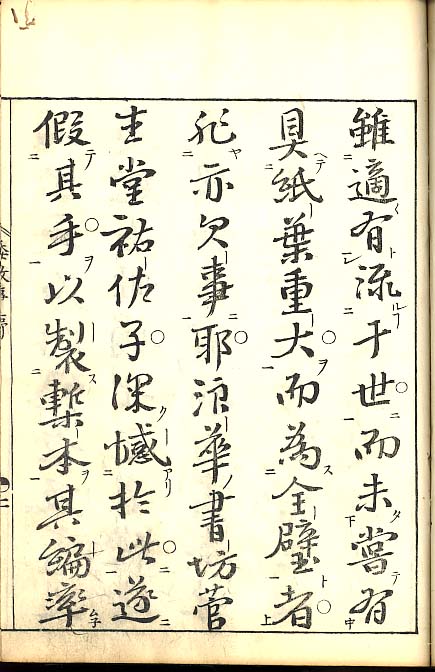 雖適有流于世而未嘗有
具紙葉重大而為全璧者
非亦欠事耶浪華書坊菅
生堂祐佐子深憾於此遂
假其手以製槧本其編率